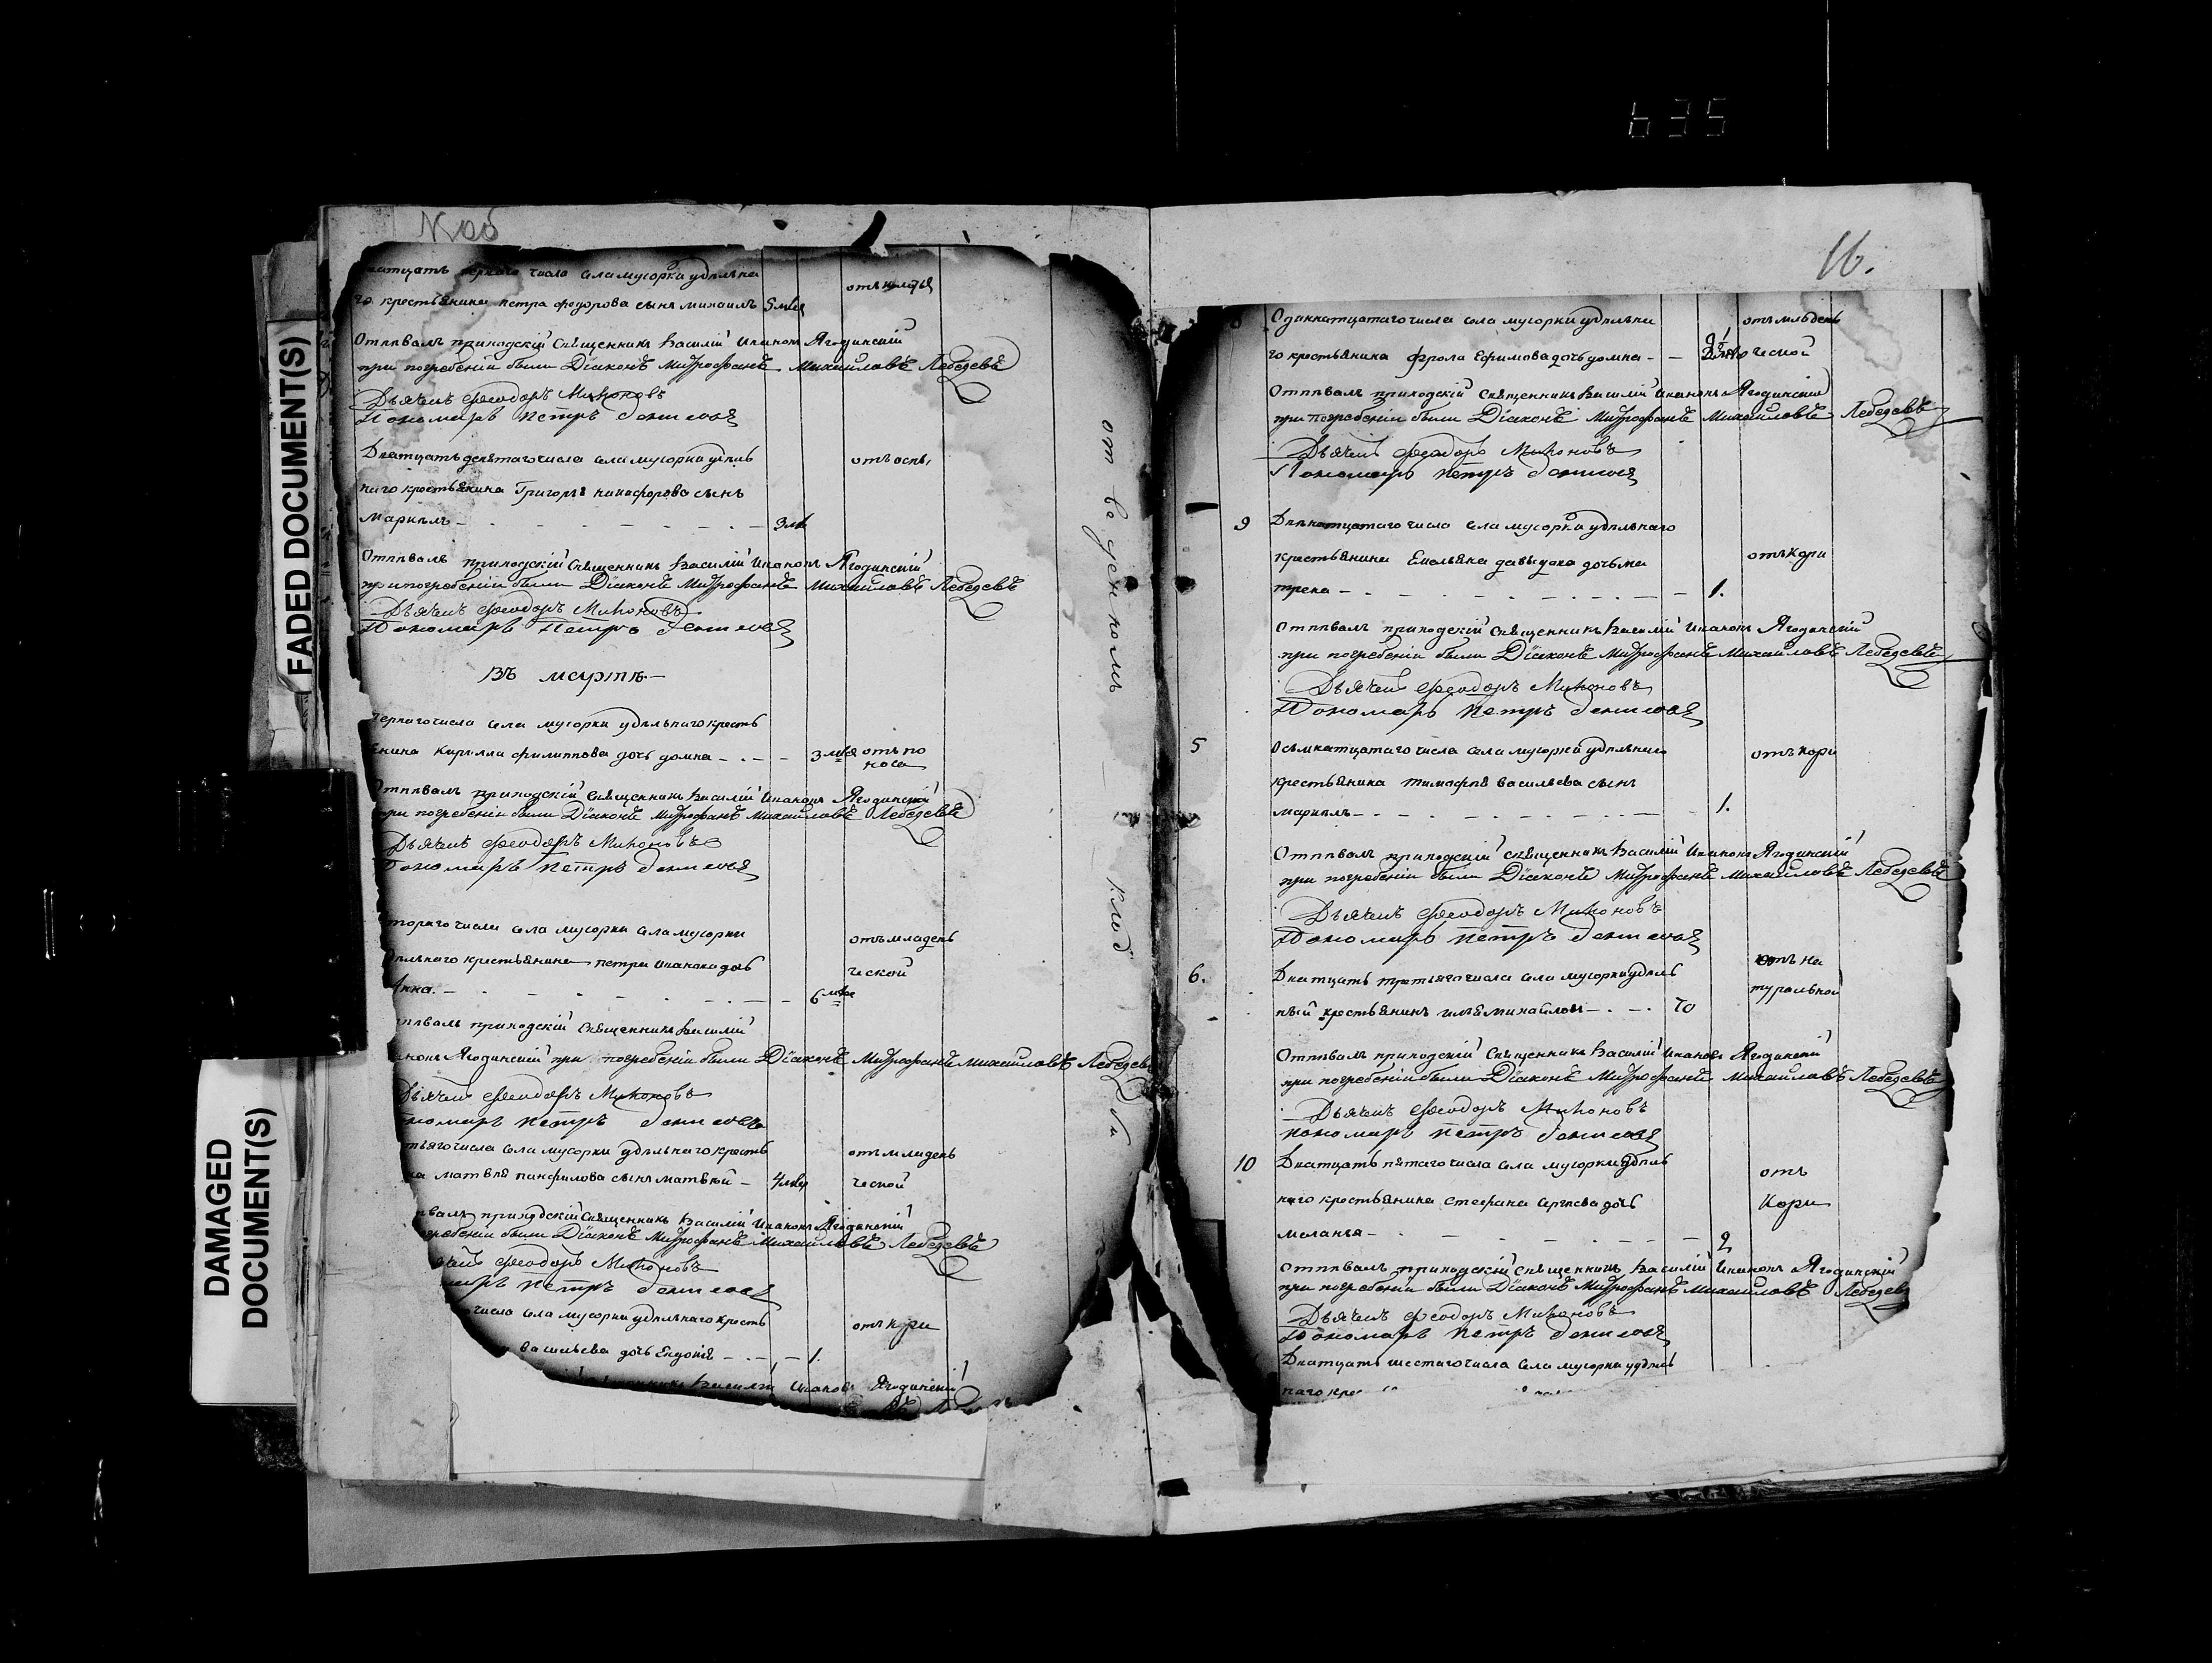 635
16.
FADED DOCUMENT(S)
DAMAGED
DOCUMENT(S)
числа села мусорки удѣльна
го крестьянина петра федорова сынъ михаилъ 5 мѣся
Отпѣвалъ приходскій Священникъ Василій Ивановъ Ягодинскій
при погребеніи были Діаконъ Митрофанъ Михайловъ Лебедевъ
Дьячекъ Феодоръ Мироновъ
Пономарь Петръ
Дватцать девятаго числа села мусорки удѣль
отъ оспы
наго крестьянина Григорья никифорова сынъ
Маркелъ 3 мѣ
Отпѣвалъ приходскій Священникъ Василій Ивановъ Ягодинскій
при погребеніи были Діаконъ Митрофанъ Михайловъ Лебедевъ
Дьячекъ Феодоръ Мироновъ
Пономарь Петръ
Въ мартѣ
первагочисла села мусорки удѣльнаго кресть
янина Кирилла филиппова дочь домна 3 мѣся отъ по
носа
Отпѣвалъ приходскій Священникъ Василій Ивановъ Ягодинскій
при погребеніи были Діаконъ Митрофанъ Михайловъ Лебедевъ
Дьячекъ Феодоръ Мироновъ
Пономарь Петръ
втораго числа села мусорки села мусорки
отъ младень
удѣльнаго крестьянина петра иванова дочь
ческой
Анна. 6 мѣся
Отпѣвалъ приходскій Священникъ Василій
Ивановъ Ягодинскій при погребеніи были Діаконъ Митрофанъ Михайловъ Лебедевъ
Дьячекъ Феодоръ Мироновъ
Пономарь Петръ
тьяго числа села мусорки удѣльнаго кресть
отъ младень
на матвѣя панфилова сынъ матвѣй 4 мѣся ческой
отпѣвалъ приходскій Священникъ Василій Ивановъ Ягодинскій
погребеніи были Діаконъ Митрофанъ Михайловъ Лебедевъ
Дьячекъ Феодоръ Мироновъ
Пономарь Петръ
числа села мусорки удѣльнаго кресть
отъ кори
васильева дочь Евдокія 1.
Василій Ивановъ Ягодинскій
Одиннатцатаго числа села мусорки удѣльна
отъ младень
го крестьянина фрола Ефимова дочь домна ческой
Отпѣвалъ приходскій Священникъ Василій Ивановъ Ягодинскій
при погребеніи были Діаконъ Митрофанъ Михайловъ Лебедевъ
Дьячекъ Феодоръ Мироновъ
Пономарь Петръ
9 Двѣнатцатаго числа села мусорки удѣльнаго
крестьянина Емельяна давыдова дочь ма
отъ кори
трена 1.
Отпѣвалъ приходскій Священникъ Василій Ивановъ Ягодинскій
при погребеніи были Діаконъ Митрофанъ Михайловъ Лебедевъ
Дьячекъ Феодоръ Мироновъ
Пономарь Петръ
5 Осьмнатцатаго числа села мусорки удѣльнаго
отъ кори
крестьянина тимофея васильева сынъ
маркелъ 1.
Отпѣвалъ приходскій Священникъ Василій Ивановъ Ягодинскій
при погребеніи были Діаконъ Митрофанъ Михайловъ Лебедевъ
Дьячекъ Феодоръ Мироновъ
Пономарь Петръ
отъ на
6. Дватцать третьяго числа села мусорки удѣль
туральной
ный крестьянинъ илья михайловъ 70
Отпѣвалъ приходскій Священникъ Василій Ивановъ Ягодинскій
при погребеніи были Діаконъ Митрофанъ Михайловъ Лебедевъ
Дьячекъ Феодоръ Мироновъ
пономарь Петръ
10 Дватцать пятаго числа села мусорки удѣль
отъ
наго крестьянина стефана дочь
кори
маланья 2
отпѣвалъ приходскій Священникъ Василій Ивановъ Ягодинскій
при погребеніи были Діаконъ Митрофанъ Михайловъ Лебедевъ
Дьячекъ Феодоръ Мироновъ
Пономарь Петръ
Дватцать шестаго числа села мусорки удѣль
наго